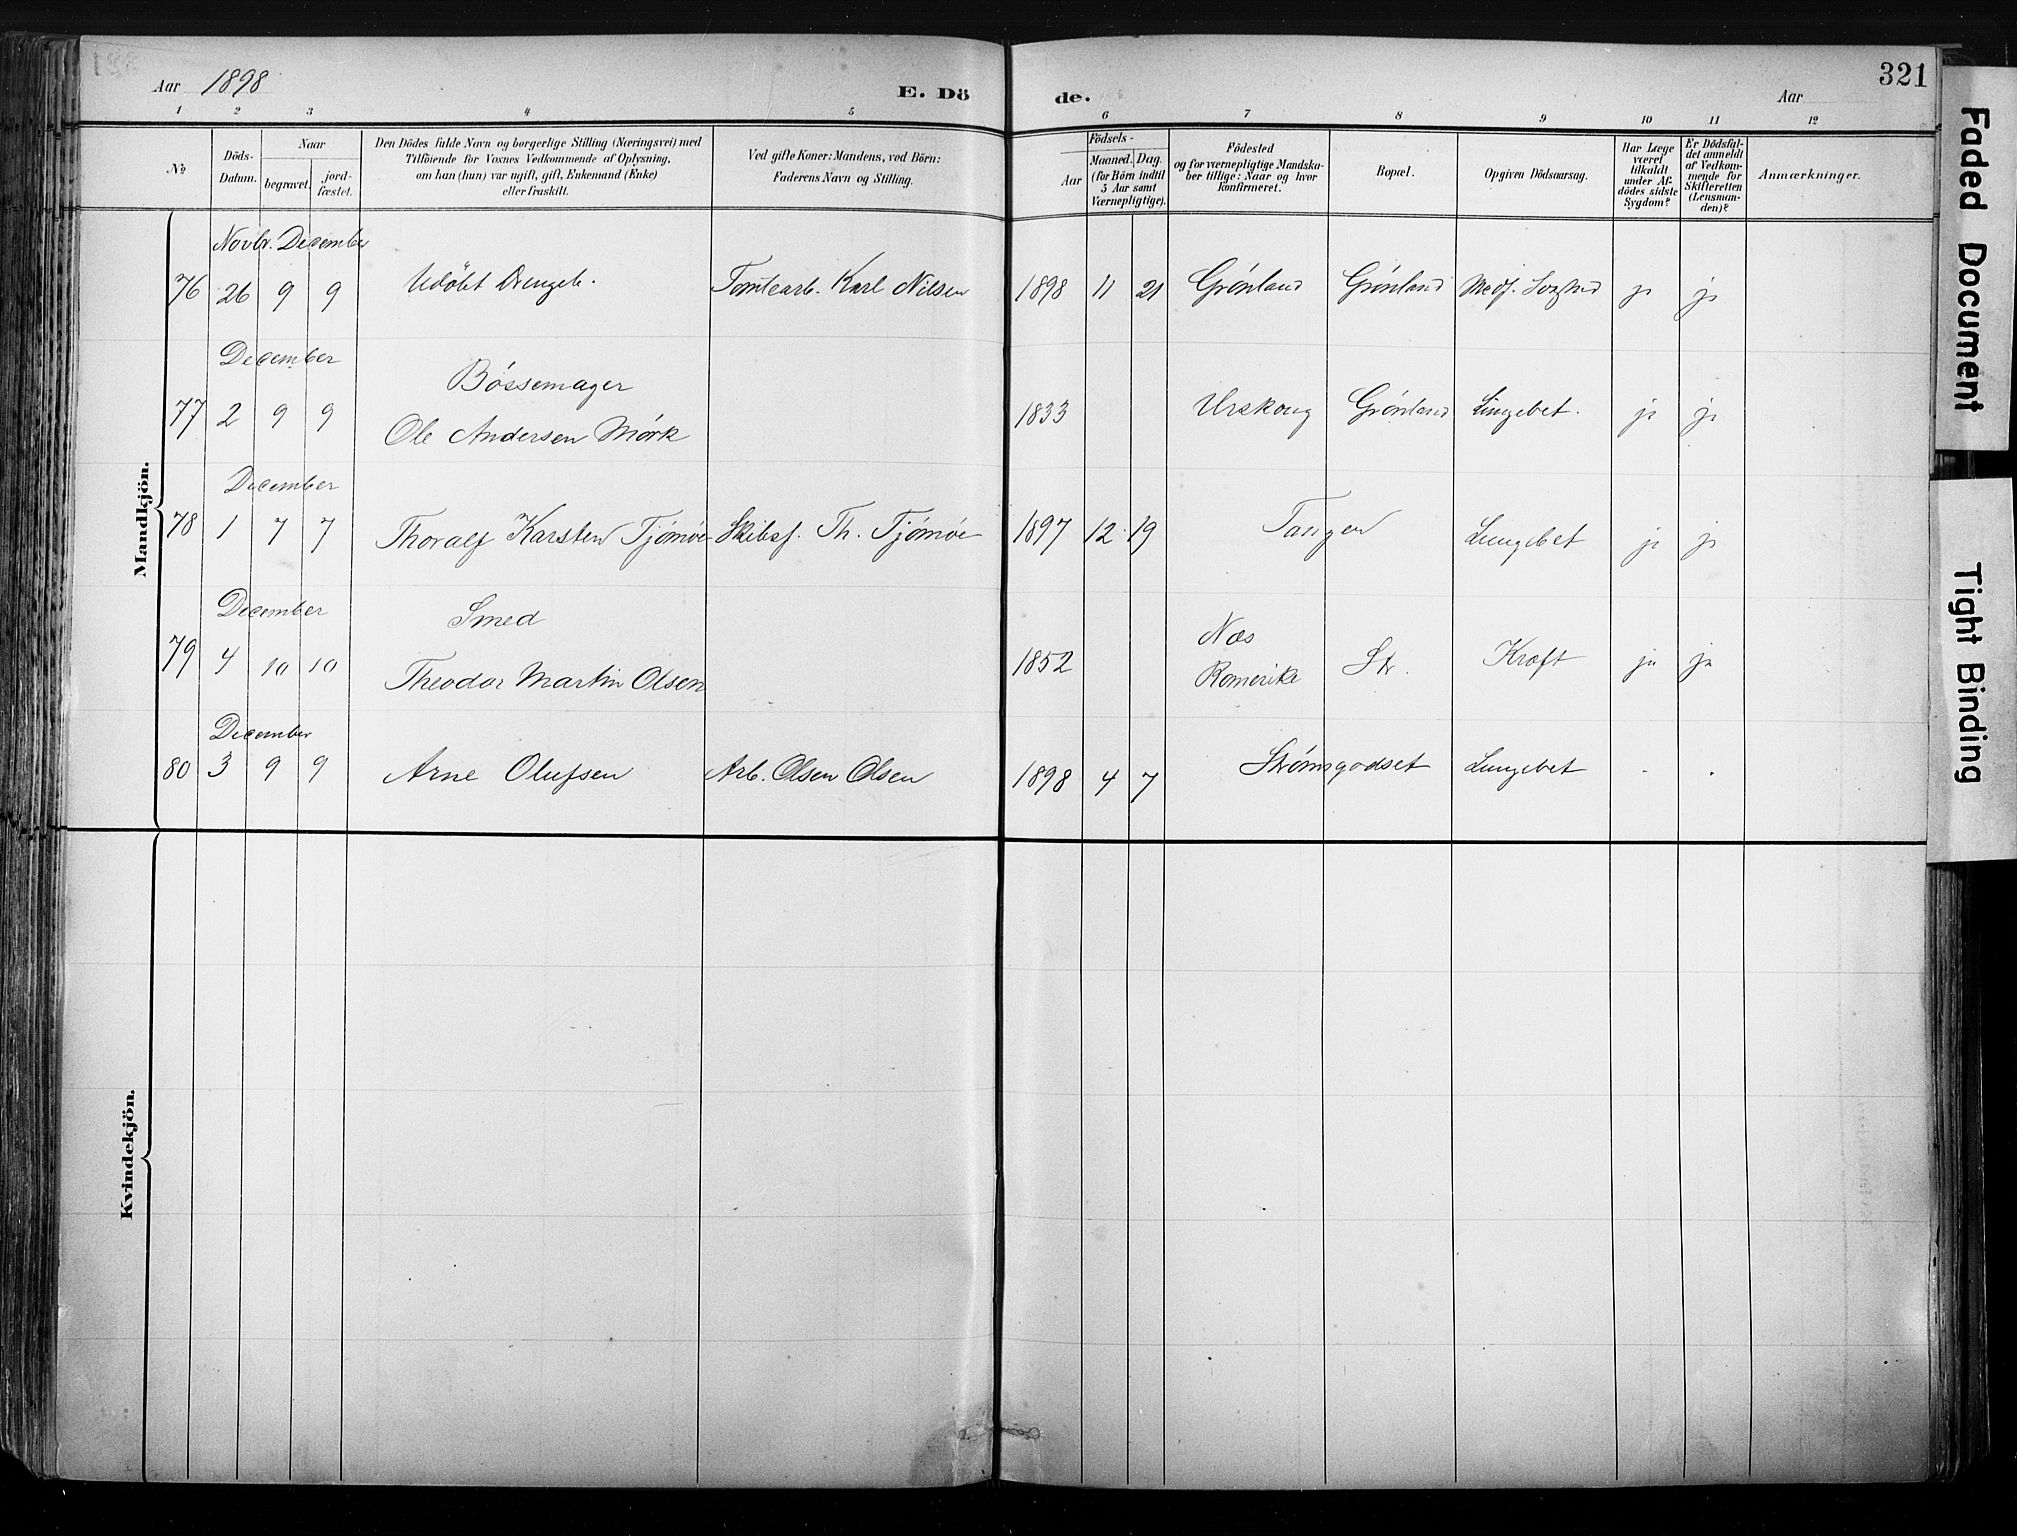 Aar 1898 E. Dö de. Aar 321
1 2 3 4 5 6 7 8 9 10 11 12
No
Döds-Datum.
Naar
begravet.
jordfæstet.
Den Dödes fulde Navn og borgerlige Stilling (Næringsvei) med
Tilföiende for Voxnes Vedkommende af Oplysning,
om han (hun) var ugift, gift, Enkemand (Enke)
eller fraskilt.
Ved gifte Koner: Mandens, ved Börn:
Faderens Navn og Stilling.
Födsels-
Aar
Maaned. Dag.
(for Börn indtil
5 Aar samt
Værnepligtige).
Födested
og for værnepligtige Mandska-
ber tillige: Naar og hvor
konfirmeret.
Bopæl.
Opgiven Dödsaarsag.
Har Læge
været
tilkaldt
under Af-
dödes sidste
Sygdom?
Er Dödsfal-
det anmeldt
af Vedkom-
mende for
Skifteretten
(Lensman-
den)?
Anmærkninger.
Mandkjön.
Novbr. December
76 26 9 9 Udöbt Drengeb. Tomtearb. Karl Nilsen 1898 11 21 Grønland Grønland Medf. ja ja
December
Bøssemager
77 2 9 9 Ole Andersen Mørk 1833 Urskoug Grønland Lungebet. ja ja
December
78 1 7 7 Thoralf Karsten Tjømøe Skibsf. Th. Tjømøe 1897 12 19 Tangen Lungebet ja ja
December
Smed
79 4 10 10 Theodor Martin Olsen 1852 Næs Romerike Str. Kræft ja ja
December
80 3 9 9 Arne Olufsen Arb. Olsen Olsen 1898 4 7 Strømsgodset Lungebet . .
Kvindekjön.
Faded Document
Tight Binding